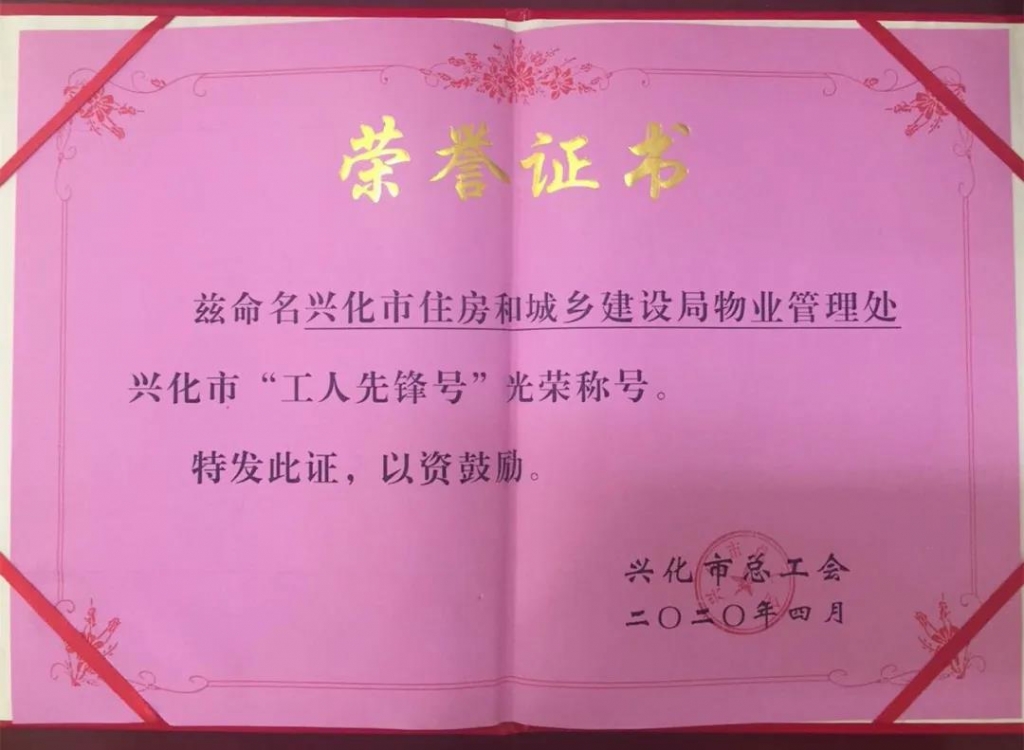 荣誉证书
兹命名兴化市住房和城乡建设局物业管理处
兴化市“工人先锋号”光荣称号。
特发此证，以资鼓励。
兴化市总工会
二〇二〇年四月